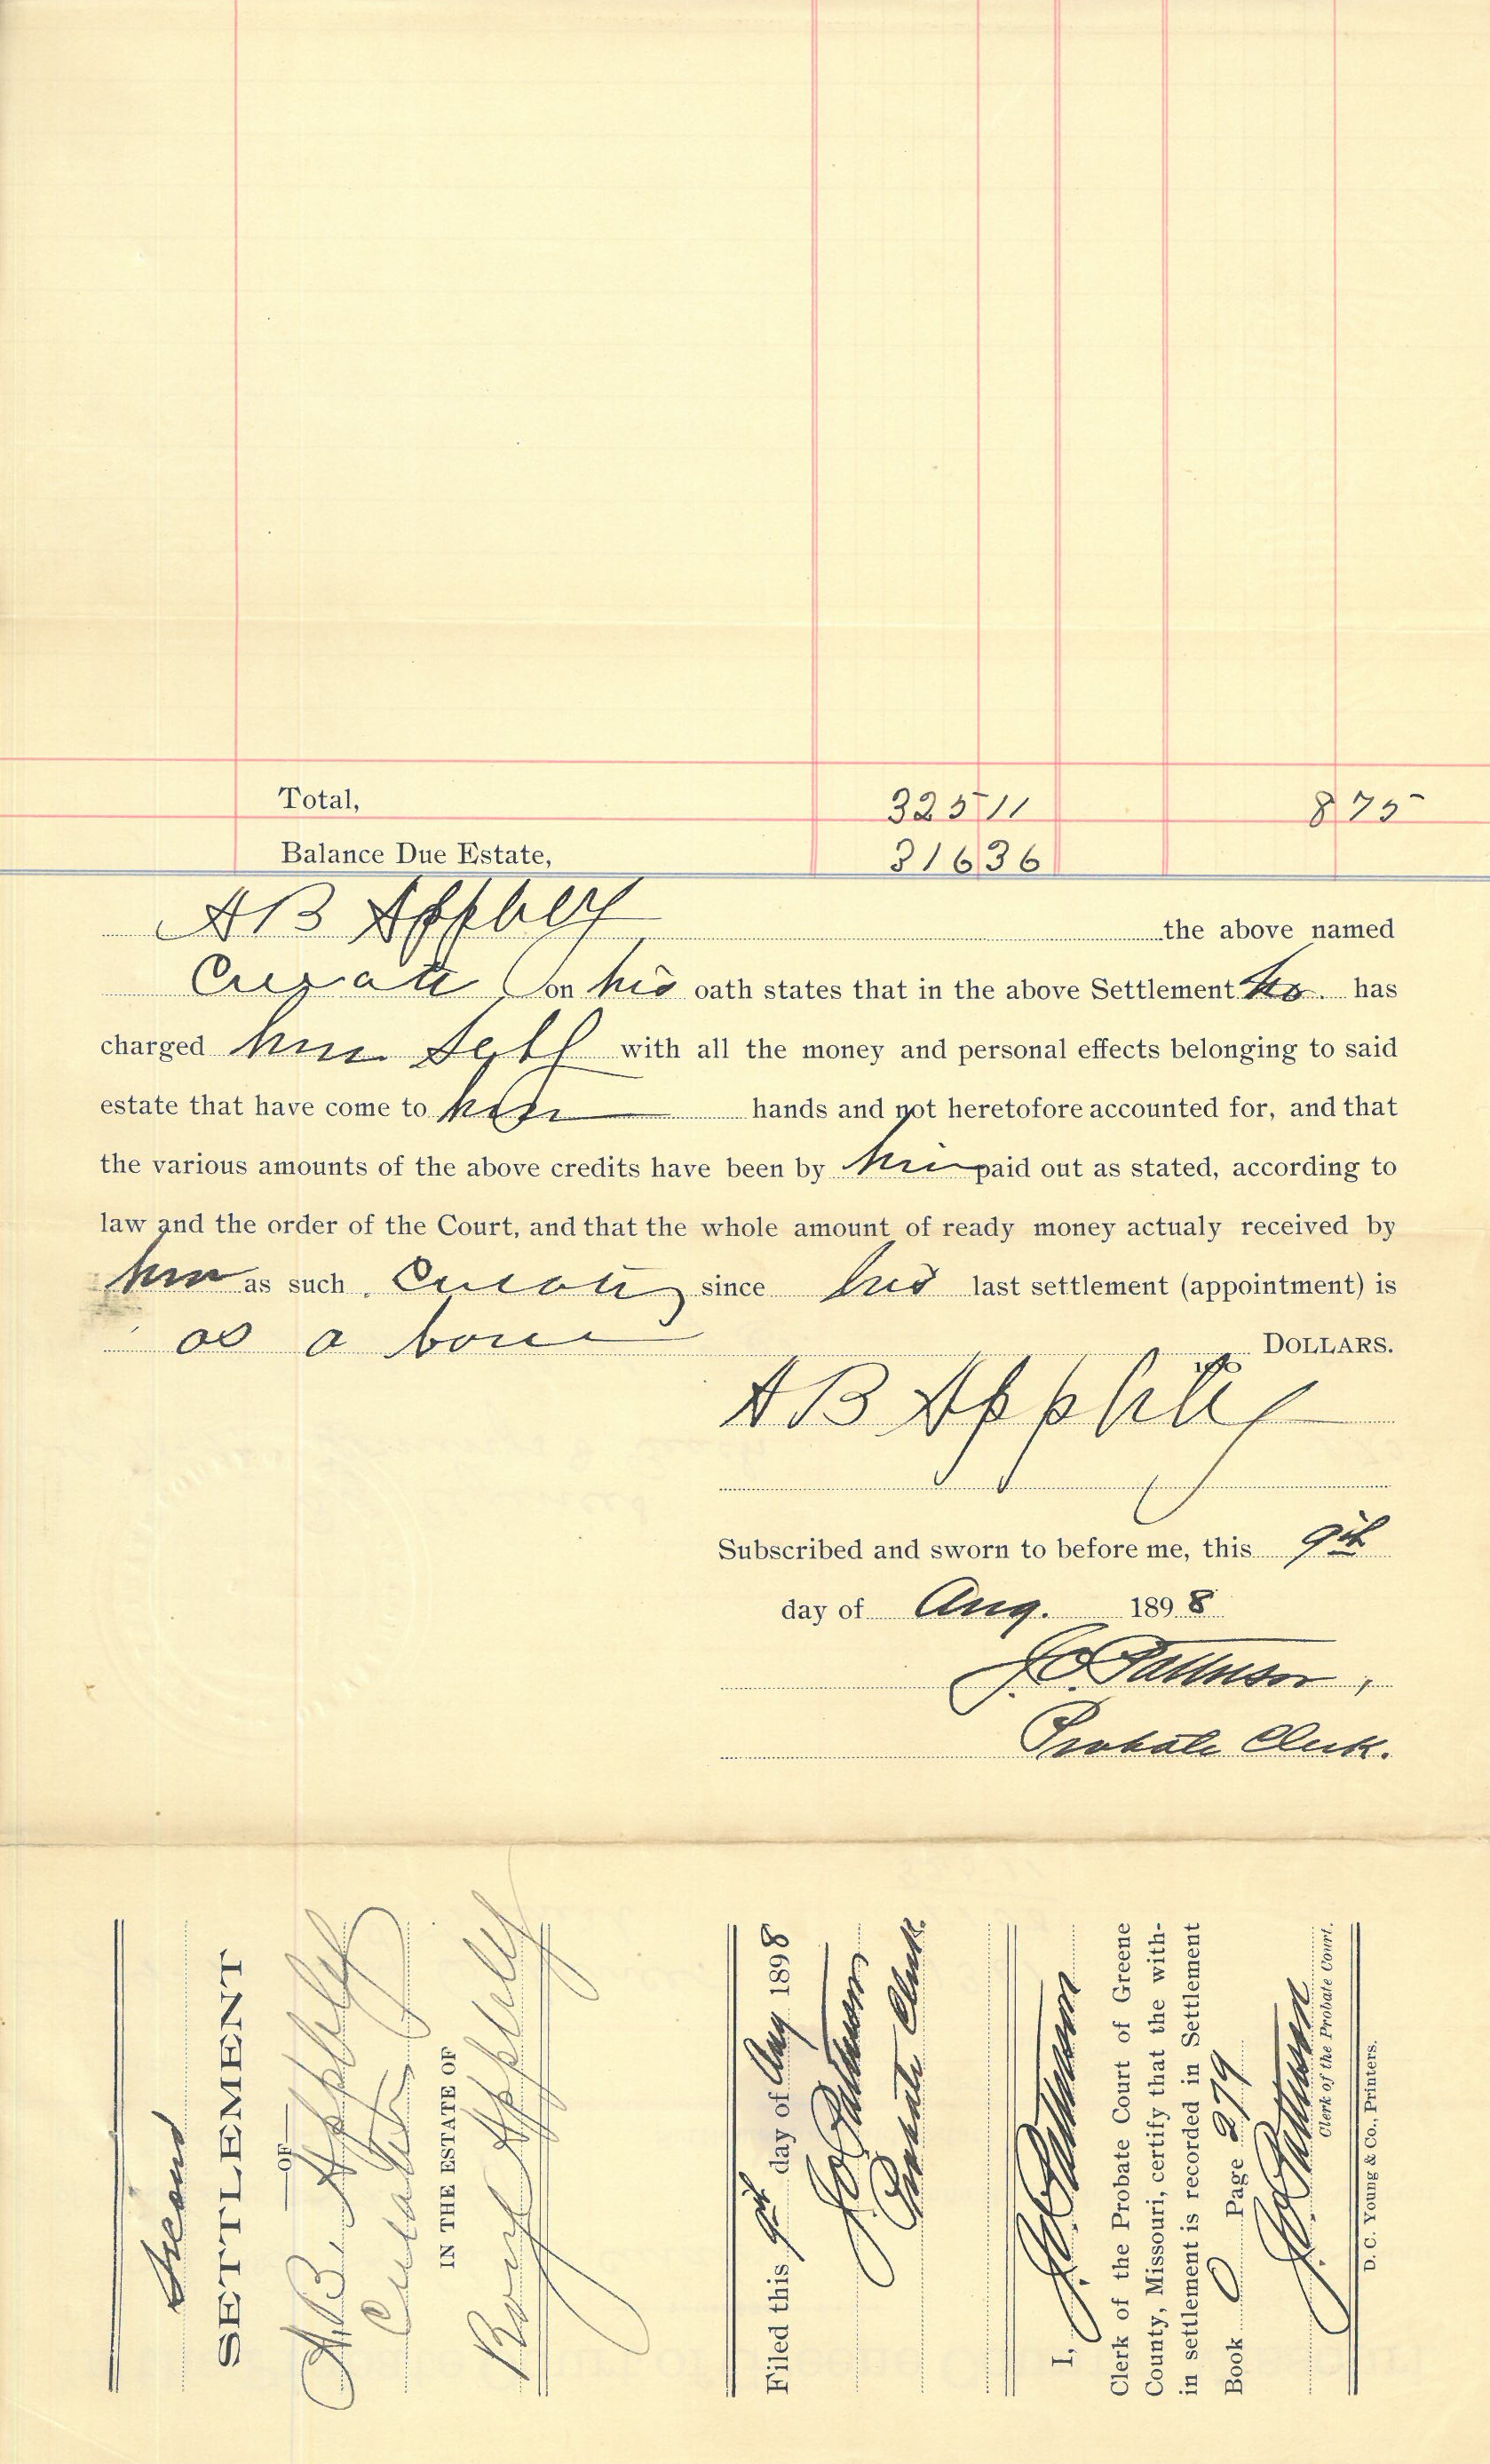 Total, 325 11 8 75
Balance Due Estate, 316 36
A B Appleby the above named
Curator on his oath states that in the above Settlement he has
charged him self with all the money and personal effects belonging to said
estate that have come to his hands and not heretofore accounted for, and that
the various amounts of the above credits have been by him paid out as stated, according to
law and the order of the Court, and that the whole amount of ready money actualy received by
him as such Curator since his last settlement (appointment) is
as a bove DOLLARS.
A B Appleby
Subscribed and sworn to before me, this 9th
day of Aug. 1898
J.C. Patterson,
Probate Clerk.
Second
SETTLEMENT
OF
A. B. Appleby
Curator
IN THE ESTATE OF
Appleby
Filed this 9th day of Aug 1898
J.C. Patterson
Probate Clerk.
I, J.C. Patterson
Clerk of the Probate Court of Greene
County, Missouri, certify that the with-
in settlement is recorded in Settlement
Book O Page 279
J.C. Patterson
Clerk of the Probate Court.
D. C. Young & Co., Printers.